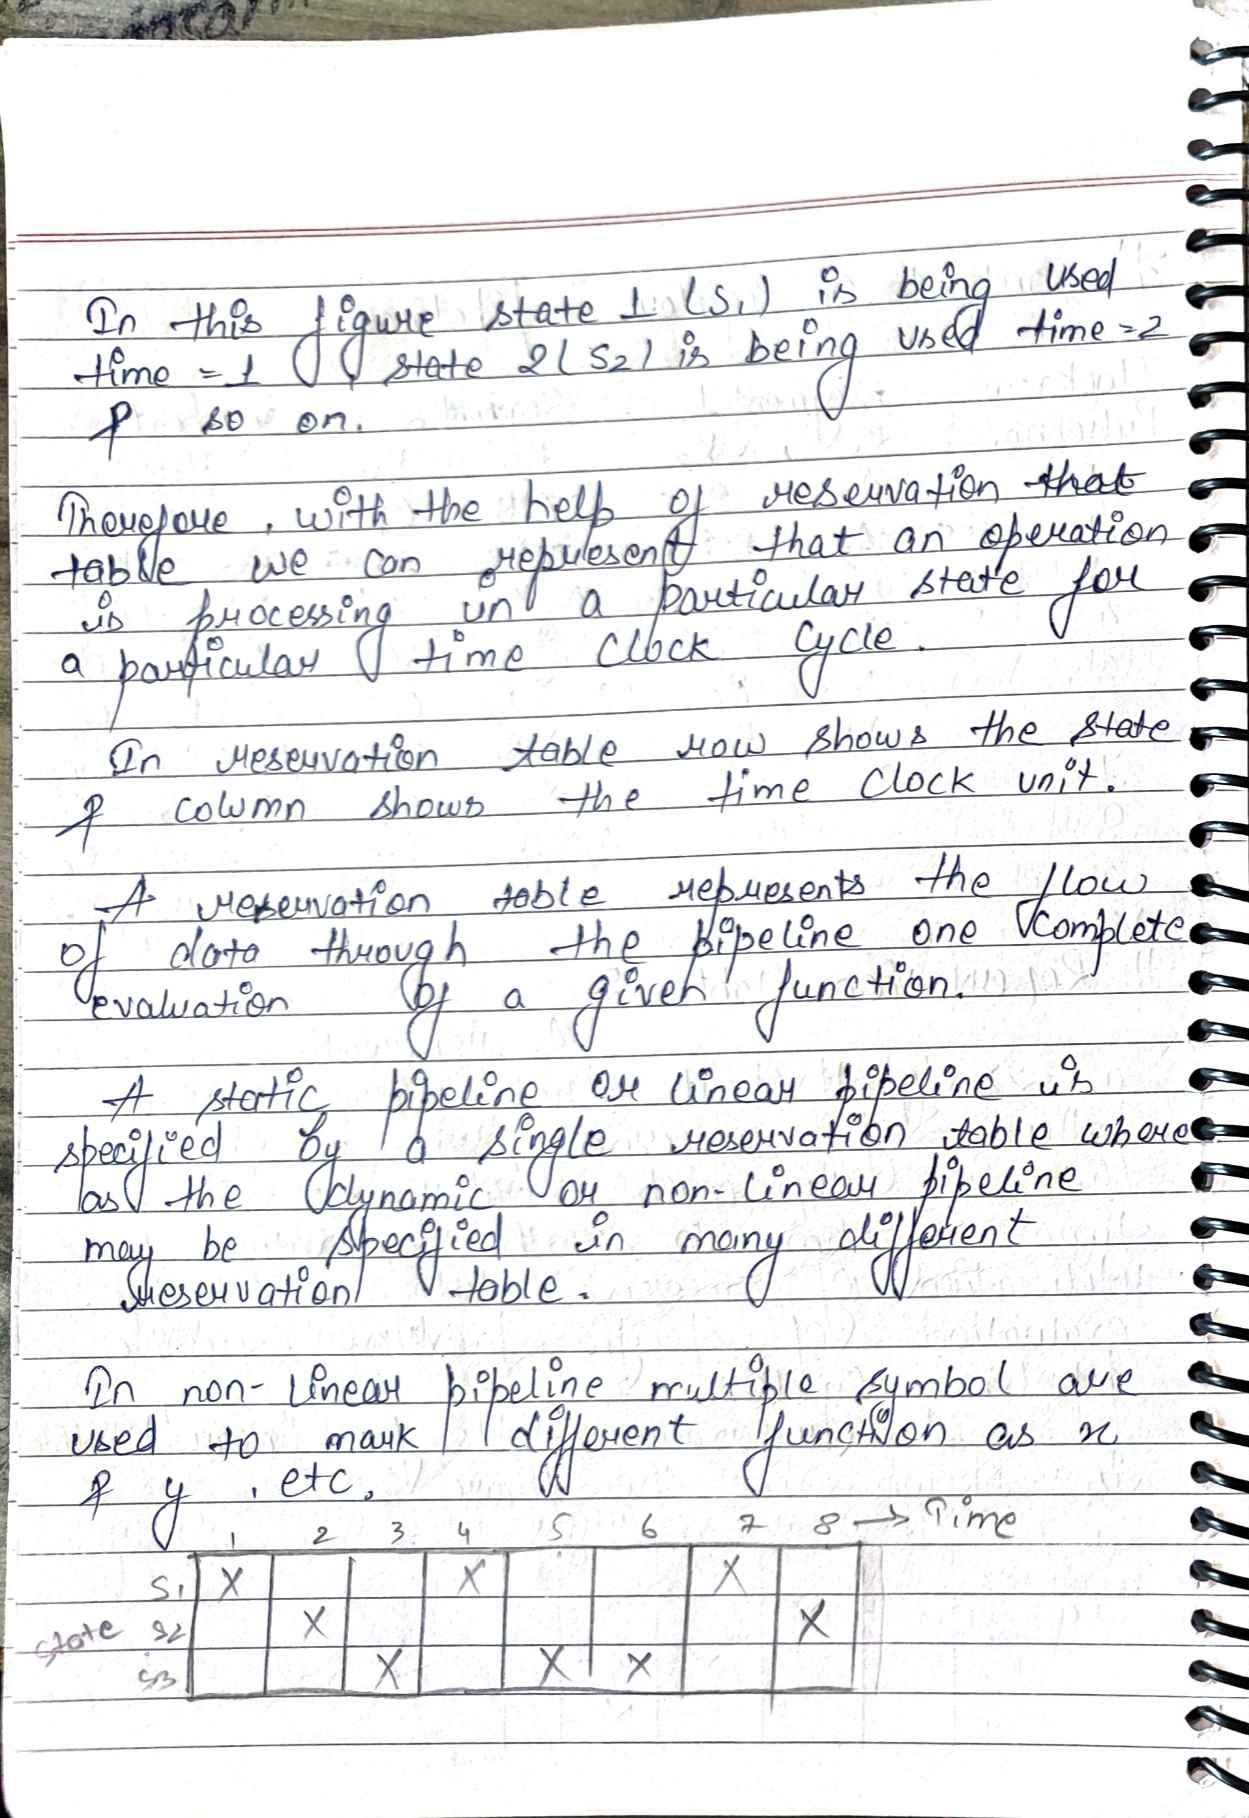 In this figure state 1 (S1) is being used
time = 1 , state 2 (S2) is being used time = 2
& so on.
Therefore, with the help of reservation that
table we can represent that an operation
is processing in a particular state for
a particular time clock cycle.
In reservation table row shows the state
& column shows the time clock unit.
A reservation table represents the flow
of data through the pipeline one complete
evaluation of a given function.
A static pipeline or linear pipeline is
specified by a single reservation table where
as the dynamic or non-linear pipeline
may be specified in many different
reservation table.
In non-linear pipeline multiple symbol are
used to mark different function as x
& y , etc.
1 2 3 4 5 6 7 8 → Time
S1 X X X
State S2 X X
S3 X X X